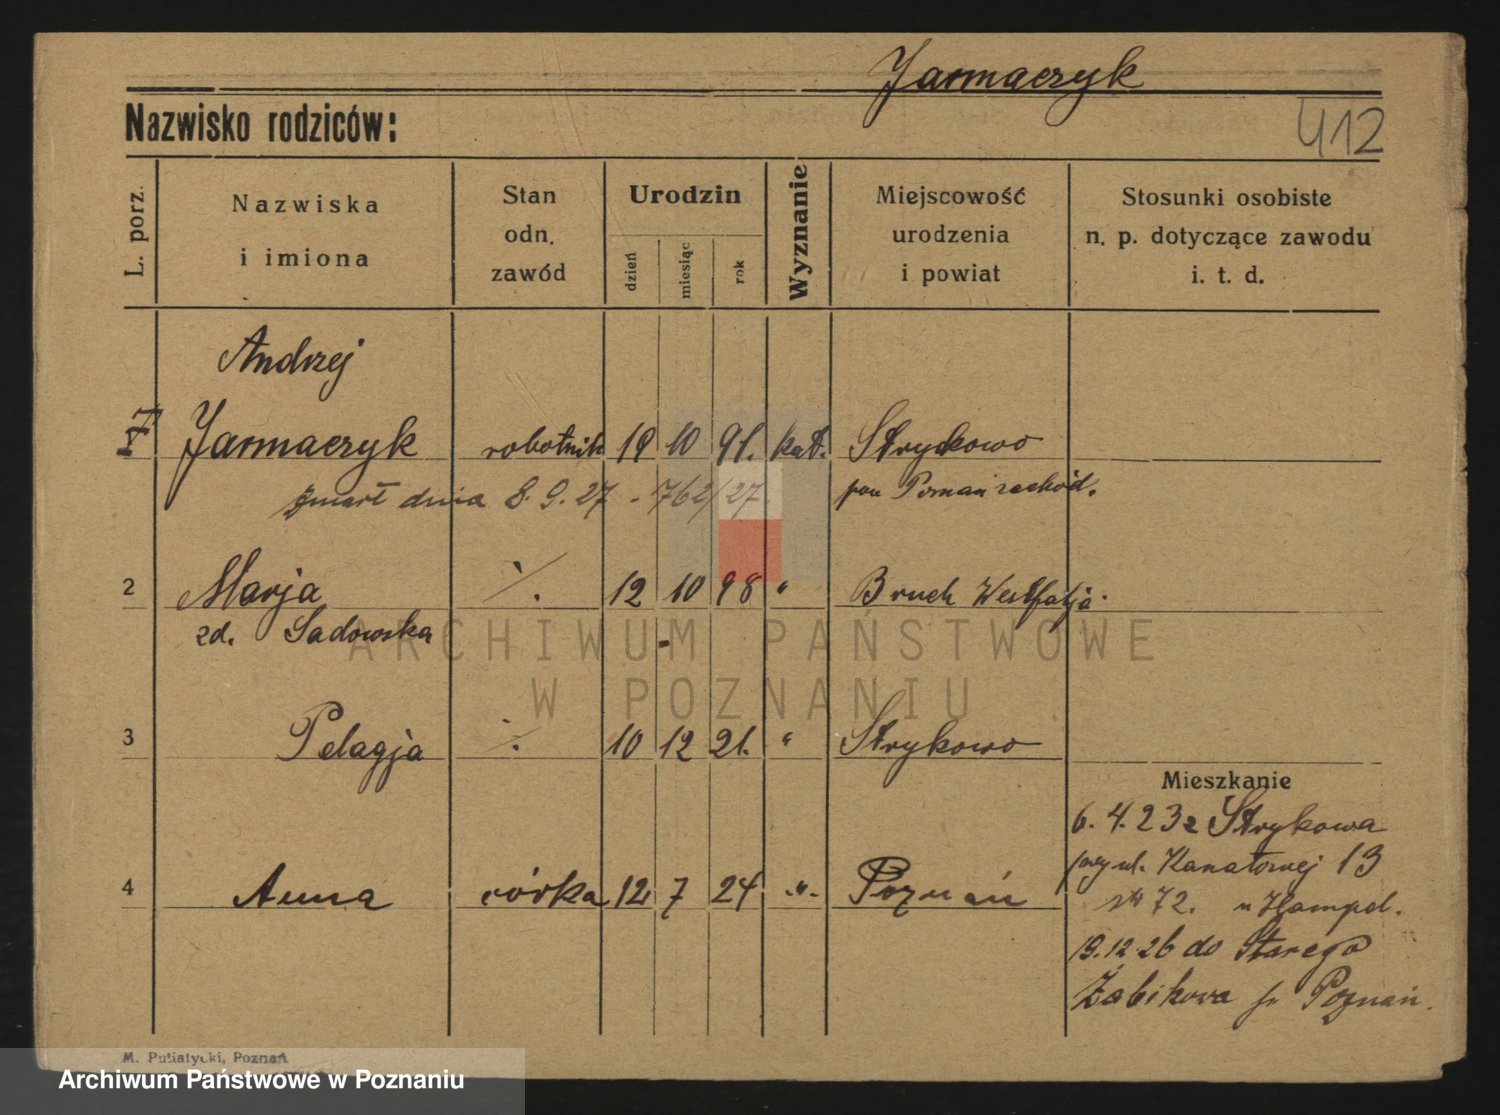 Jarmaczyk
Nazwisko rodziców:
412
L. porz.
Nazwiska
i imiona
Stan
odn.
zawód
Urodzin
dzień
miesiąc
rok
Wyznanie
Miejscowość
urodzenia
i powiat
Stosunki osobiste
n. p. dotyczące zawodu
i. t. d.
Andrzej
Jarmaczyk robotnik 19 10 91. kat. Strykowo
zmarł dnia 8.9.27 - 762/27. pow Poznań zachód.
2 Marja ·/. 12 10 98 " Bruch Westfalja.
zd. Sadowska
3 Pelagja ·/. 10 12 21. " Strykowo
Mieszkanie
6.4.23 z Strykowa
przy ul. Kanałowej 13
4 Anna córka 12 7 24 -"- Poznań
72. u Hampel.
19.12.26 do Starego
Żabikowa p. Poznań.
M. Putiatycki, Poznań
ARCHIWUM PAŃSTWOWE
W POZNANIU
Archiwum Państwowe w Poznaniu